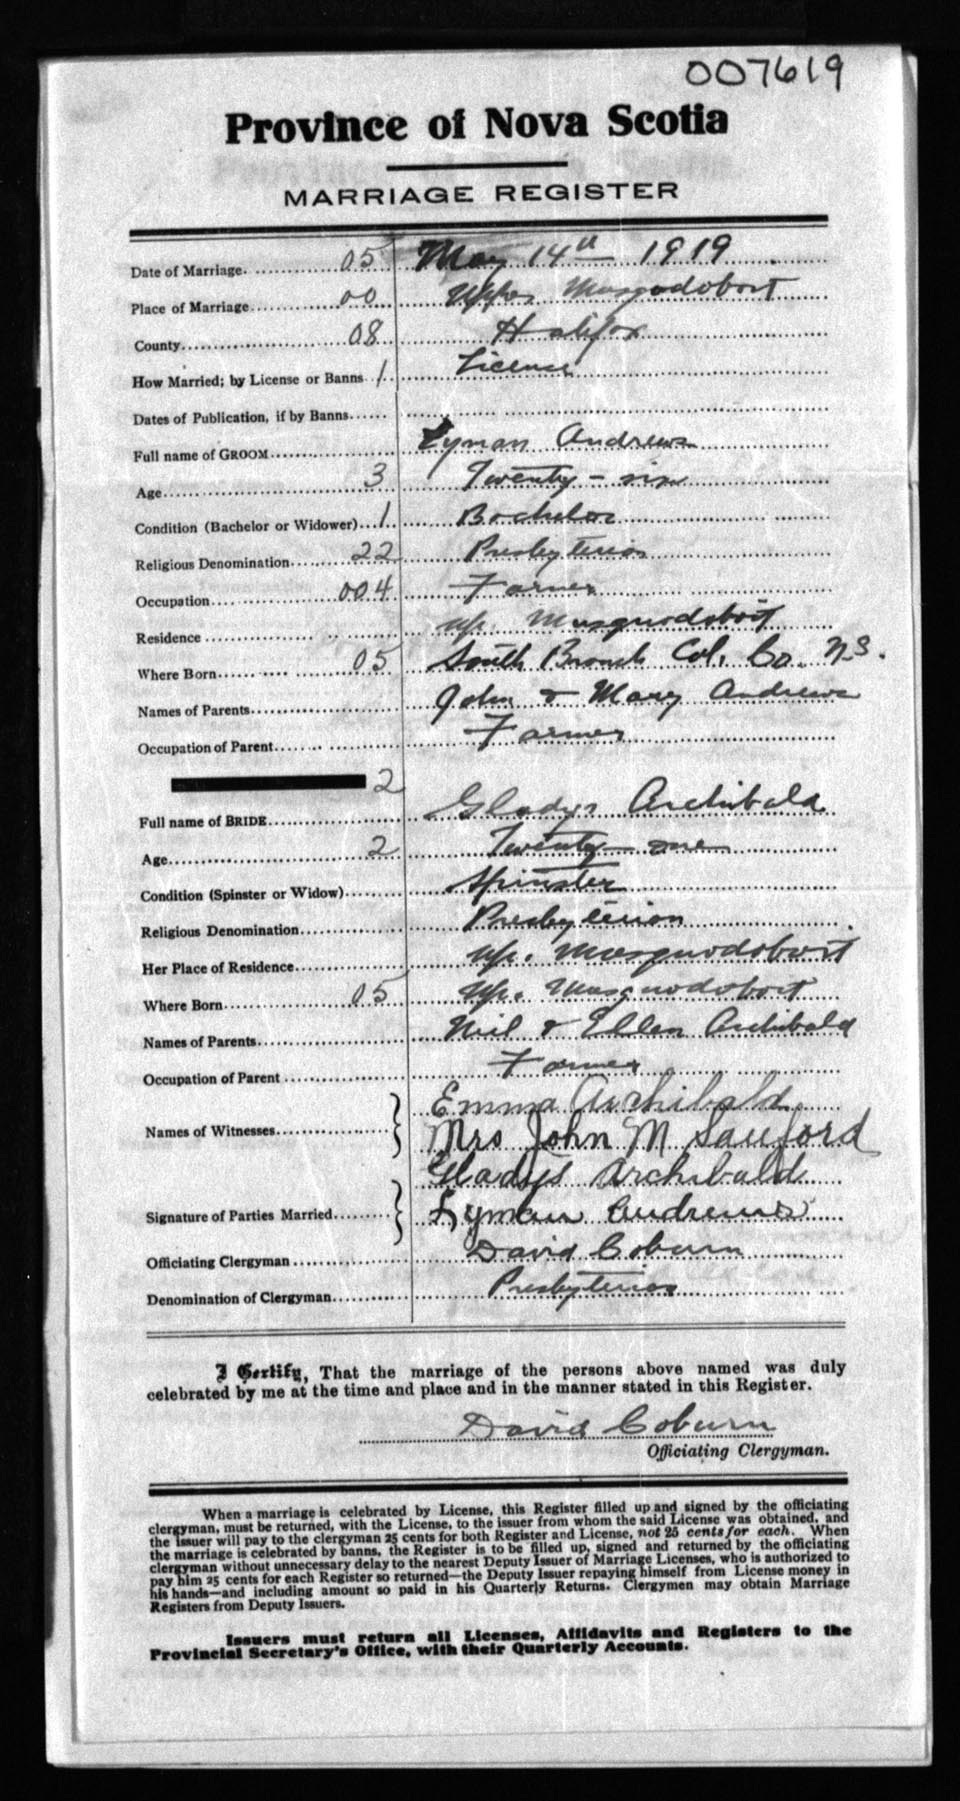 007619
Province of Nova Scotia
MARRIAGE REGISTER
Date of Marriage. 05 May 14th 1919
Place of Marriage 00 Upper Musquodoboit
County 08 Halifax
How Married; by License or Banns 1 License
Dates of Publication, if by Banns
Full name of GROOM Lyman Andrews
Age 3 Twenty-six
Condition (Bachelor or Widower) 1 Bachelor
Religious Denomination 22 Presbyterian
Occupation 004 Farmer
Residence up. Musquodoboit
Where Born 05 South Branch Col. Co. N.S.
Names of Parents John & Mary Andrews
Occupation of Parent Farmer
2
Full name of BRIDE Gladys Archibald
Age 2 Twenty-one
Condition (Spinster or Widow) Spinster
Religious Denomination Presbyterian
Her Place of Residence up. Musquodoboit
Where Born 05 Up. Musquodoboit
Names of Parents Neil & Ellen Archibald
Occupation of Parent Farmer
Emma Archibald
Names of Witnesses Mrs John M Sauford
Gladys Archibald
Signature of Parties Married Lyman Andrews
Officiating Clergyman David Coburn
Denomination of Clergyman Presbyterian
I Certify, That the marriage of the persons above named was duly
celebrated by me at the time and place and in the manner stated in this Register.
David Coburn
Officiating Clergyman.
When a marriage is celebrated by License, this Register filled up and signed by the officiating
clergyman, must be returned, with the License, to the issuer from whom the said License was obtained, and
the issuer will pay to the clergyman 25 cents for both Register and License, not 25 cents for each. When
the marriage is celebrated by banns, the Register is to be filled up, signed and returned by the officiating
clergyman without unnecessary delay to the nearest Deputy Issuer of Marriage Licenses, who is authorized to
pay him 25 cents for each Register so returned—the Deputy Issuer repaying himself from License money in
his hands—and including amount so paid in his Quarterly Returns. Clergymen may obtain Marriage
Registers from Deputy Issuers.
Issuers must return all Licenses, Affidavits and Registers to the
Provincial Secretary's Office, with their Quarterly Accounts.